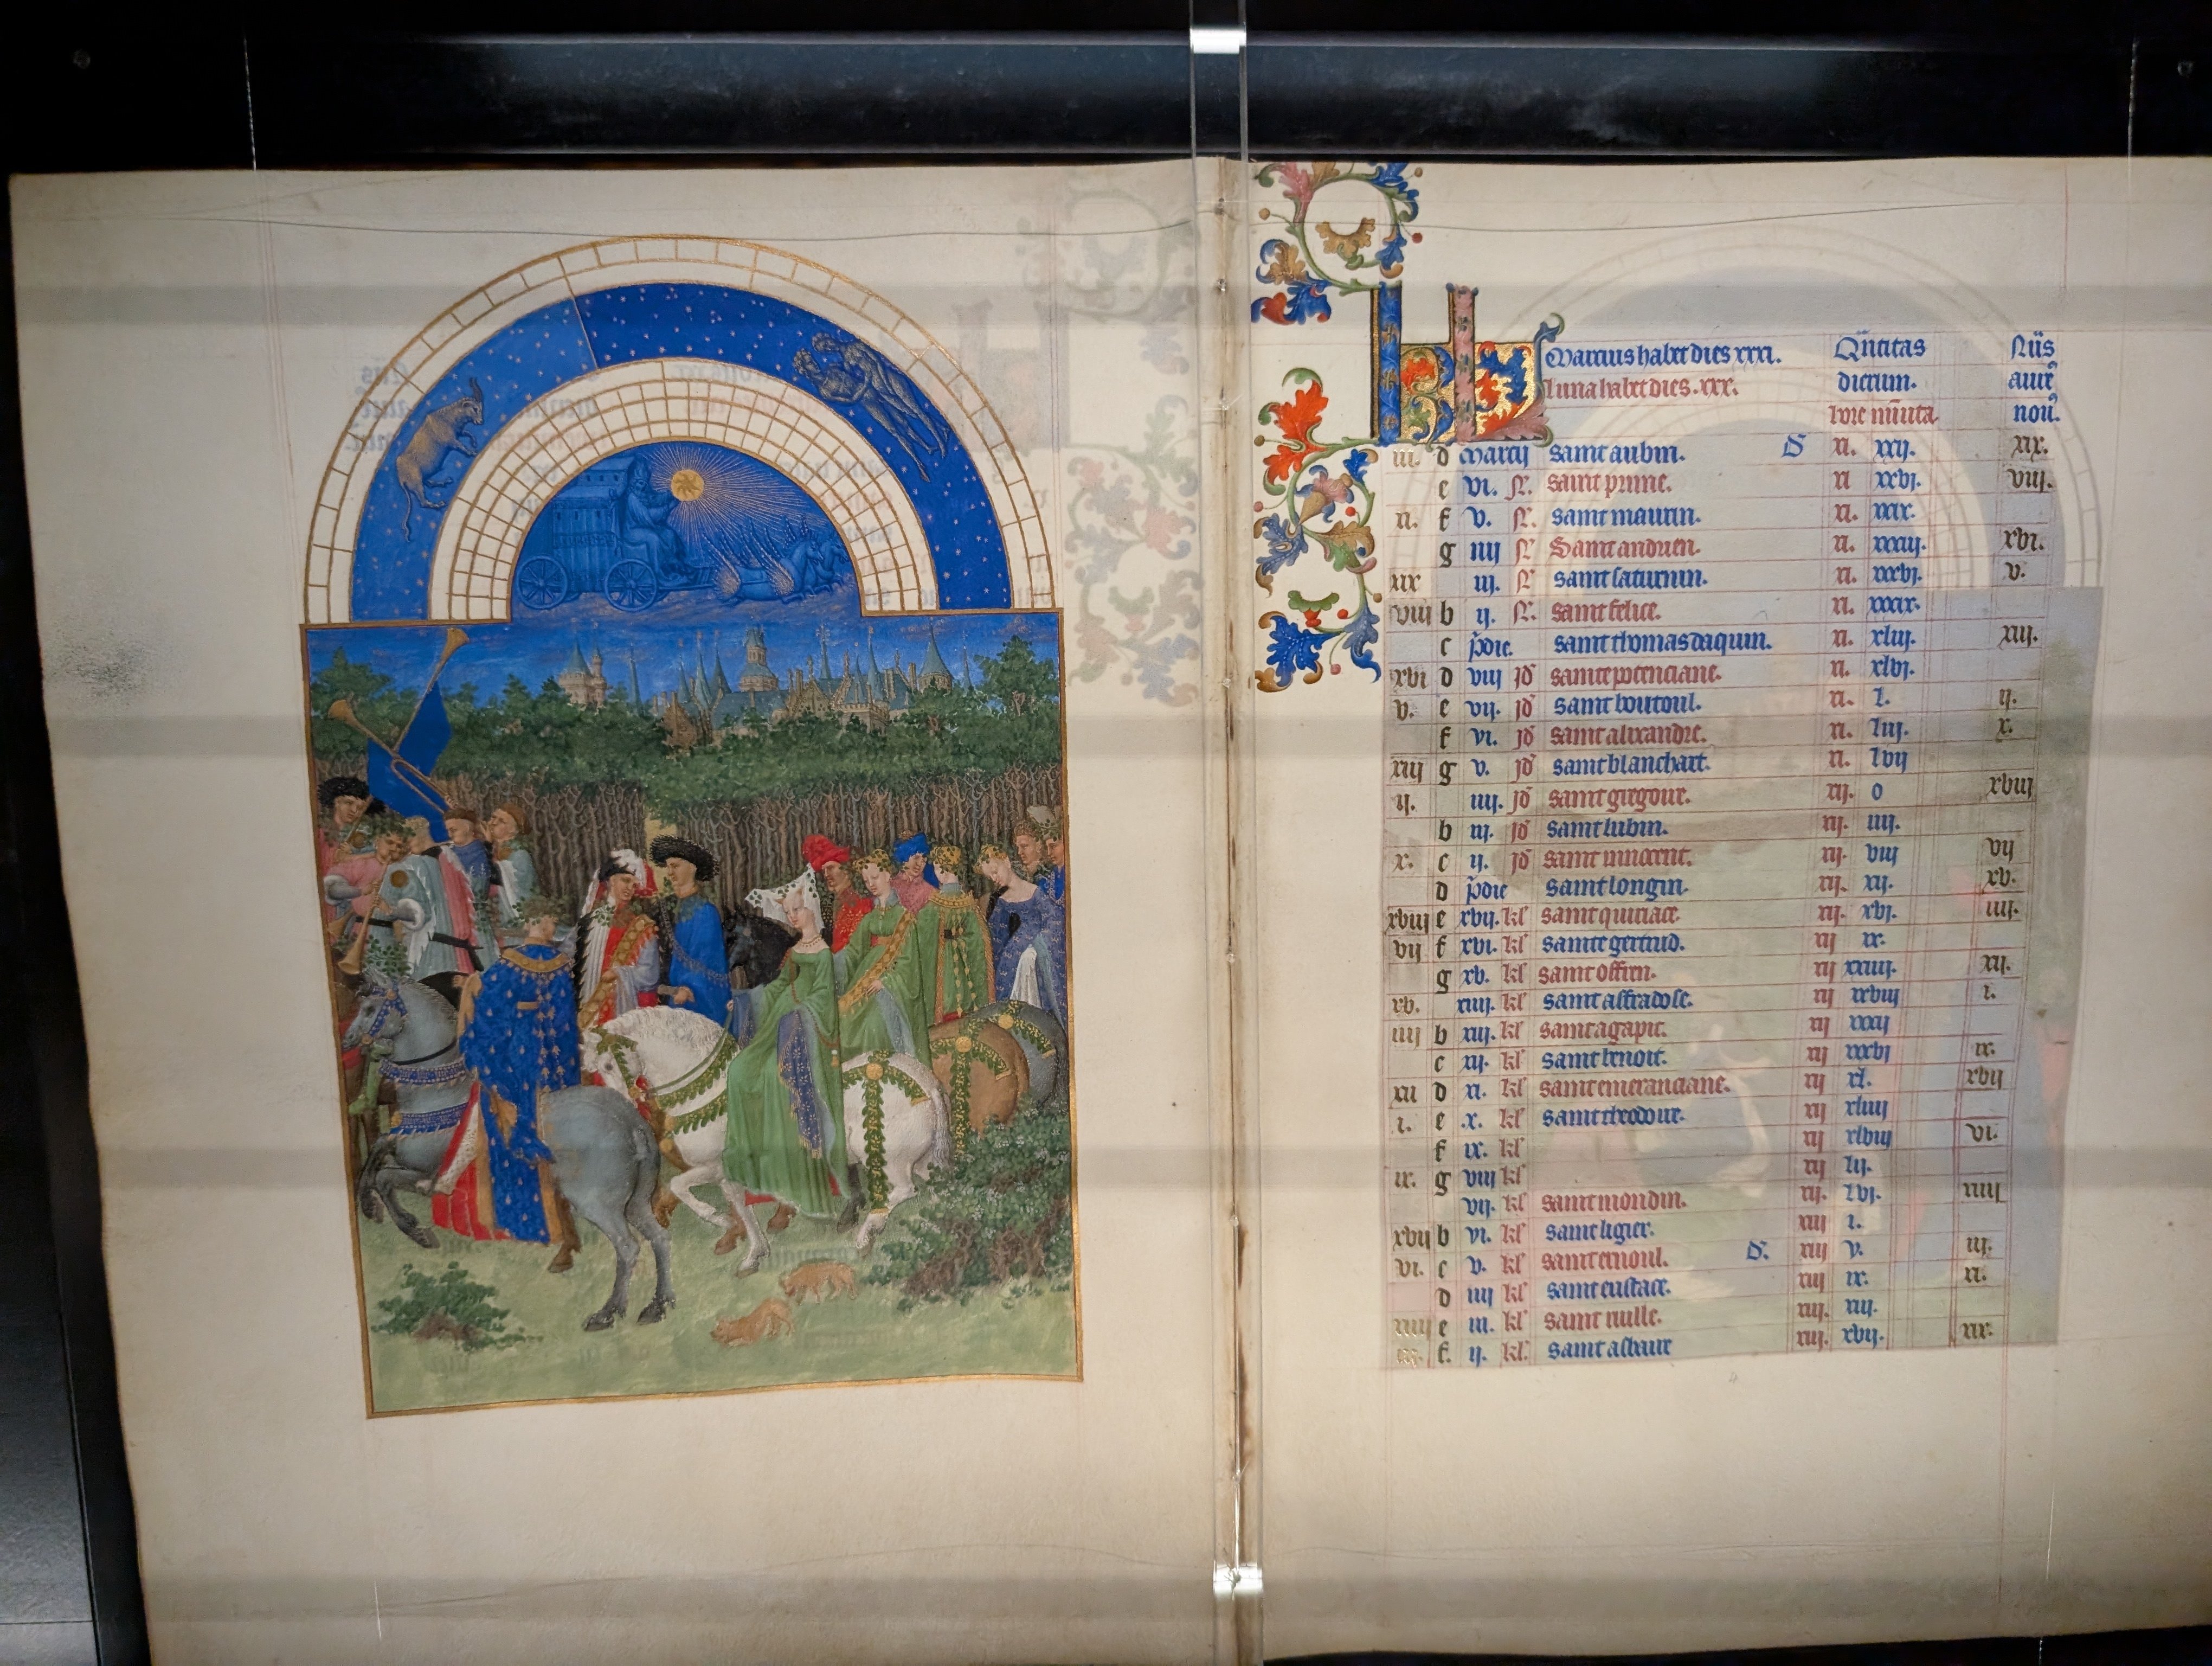 Marcius habet dies xxxi. Qñtitas Nũs
Luna habet dies . xxx. dierum. aureꝰ
hore minuta nouꝰ.
iii. d Marcij saint aubin. S xi. xxij. xix.
e vi. N. saint prime. xi xxvi. viij.
xi. f v. N. saint mautin. xi. xxix.
g iiij N Saint andrien. xi. xxxij. xvi.
xix iij. N saint saturnin. xi. xxxvi. v.
viij b ij. N. saint felice. xi. xxxix.
c p̃die. saint thomas daquin. xi. xliij. xiij.
xvi d viij id sainte potenciane. xi. xlvi.
v. e vij. id saint boutoul. xi. l. ij.
f vi. id saint alixandre. xi. liij. x.
xiij g v. id saint blanchart. xi. lvij
ij. iiij. id saint gregoire. xij. o xviij
b iij. id saint lubin. xij. iiij.
x. c ij. id saint innocent. xij. viij vij
d p̃die saint longin. xij. xij. xv.
xviij e xvij. kl saint quiriace. xij. xvi. iiij.
vij f xvi. kl sainte gertrud. xij xx.
g xv. kl saint offien. xij xxiiij. xij.
xv. xiiij. kl saint affradose. xij xxviij i.
iiij b xiij. kl saint agapit. xij xxxij
c xij. kl saint benoit. xij xxxvi ix.
xij d xi. kl sainte meranciane. xij xl. xvij
i. e x. kl saint theodore. xij xliiij
f ix. kl xij xlviij vi.
ix. g viij kl xij lij.
vij. kl saint mondin. xij. lvi. xiiij
xvij b vi. kl saint ligier. xiij i.
vi. c v. kl saint ernoul. S. xiij v. iij.
d iiij kl saint eustace. xiij ix. xi.
xiiij e iij. kl saint rulle. xiij. xiij.
iij. f. ij. kl. saint asbaire xiij. xvij. xix.